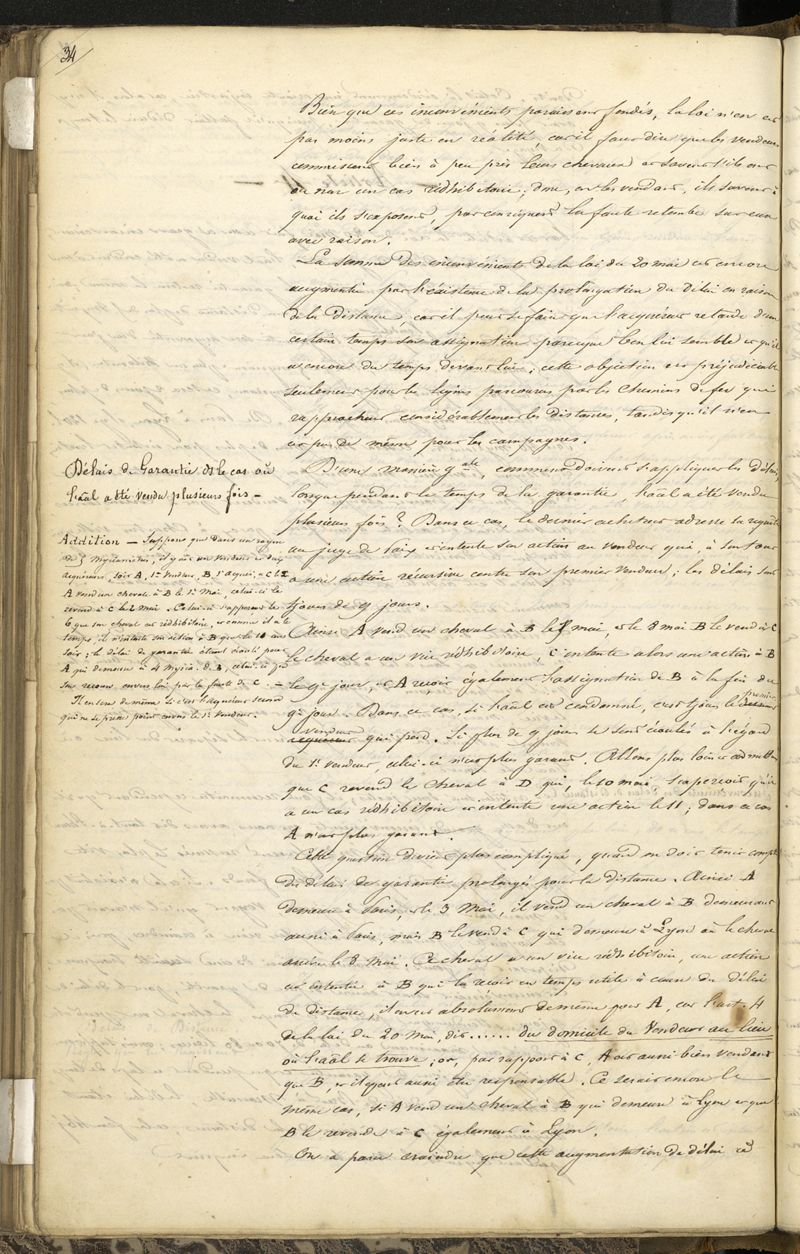 34
Bien que ces inconvénients paraissent fondés, la loi n'en est
pas moins juste en réalité, car il faut dire que les vendeurs
connaissent bien à peu près leurs chevaux et savent s'ils ont
ou non un cas rédhibitoire ; donc, en les vendant, ils savent à
quoi ils s'exposent, par conséquent la faute retombe sur eux
avec raison.
La somme des inconvénients de la loi du 20 mai est encore
augmentée par l'existence de la prolongation du délai en raison
de la distance car il peut se faire que l'acquéreur retarde d'un
certain temps son assignation parceque bon lui semble et qu'il
a encore du temps devant lui ; cette objection est préjudiciable
seulement pour les lignes parcourues par les chemins de fer qui
rapprochent considérablement les distances, tandis qu'il n'en
est pas de même pour les campagnes.
Délais de Garantie ds le cas où
l'aâl a été vendu plusieurs fois —
D'une manière gale, comment doivent s'appliquer les délais,
lorsque pendant le temps de la garantie, l'aâl a été vendu
plusieurs fois ? Dans ce cas, le dernier acheteur adresse sa requête
au juge de paix et intente son action au vendeur qui, à son tour
a une action récursive contre son premier vendeur ; les délais sont
tjours de 9 jours.
Addition — Supposons que dans un rayon
de 5 Myriamètres, il y ait un vendeur et deux
acquéreurs, soit A, 1er vendeur, B, 1er acquér. et C le 2e
A vend un cheval à B le 1er Mai, celui-ci le
revend à C le 2 Mai. Celui-ci s'apperçoit le
6 que son cheval est rédhibitoire, et comme il a le
temps il n'intente son action à B que le 10 au
soir ; le délai de garantie étant écoulé pour
A qui demeure à 4 myria. de B, celui-ci perd
son recours envers lui par la faute de C. —
Il en sera de même si c'est l'acquéreur second
qui ne se presse point envers le 1er Vendeur.
Ainsi A vend un cheval à B le 1er mai, et le 8 mai B le vend à C
le cheval a un vice rédhibitoire, C intente alors une action à B
le 9e jour, et A reçoit également l'assignation de B à la fin du
9e jour. Dans ce cas, si l'aâl est condamné, c'est tjours le premier
vendeur qui perd. Si plus de 9 jours se sont écoulés à l'égard
du 1er vendeur, celui-ci n'est plus garant. Allons plus loin et admettons
que C revend le cheval à D qui, le 10 mai s'aperçoit qu'il
a un cas rédhibitoire et intente une action le 11 ; dans ce cas
A n'est plus garant.
Cette question devient plus compliqué, quand on doit tenir compte
du délai de garantie prolongé pour la distance. Ainsi A
demeure à Paris, et le 3 Mai, il vend un cheval à B demeurant
aussi à Paris, mais B le vend à C qui demeure à Lyon où le cheval
arrive le 8 Mai. Ce cheval a un vice rédhibitoire, une action
est intentée à B qui la reçoit en temps utile à cause du délai
de distance, il en est absolument de même pour A, car l'art. 4
de la loi du 20 Mai, dit ...... du domicile du Vendeur au lieu
où l'aâl se trouve ; or, par rapport à C, A est aussi bien vendeur
que B, et il peut aussi être responsable. Ce serait encore le
même cas, si A vend un cheval à B qui demeure à Lyon et que
B le revende à C également à Lyon.
On a paru craindre que cette augmentation de délai et